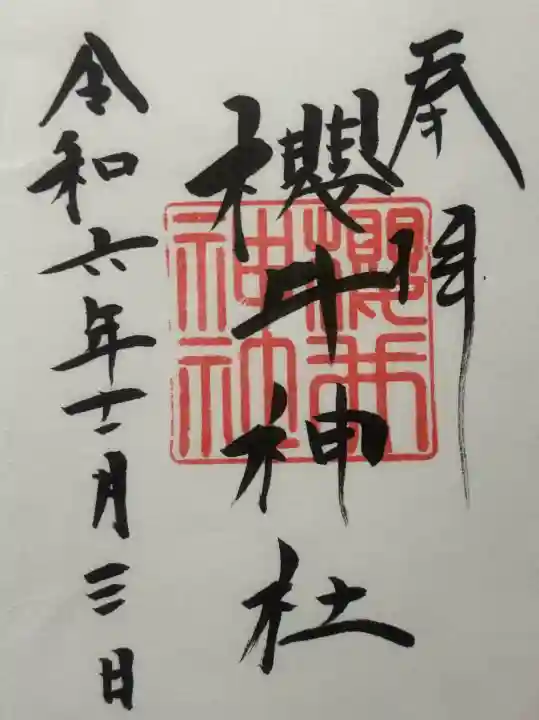 奉拝
櫻井神社
櫻井
神社
令和六年十二月三日